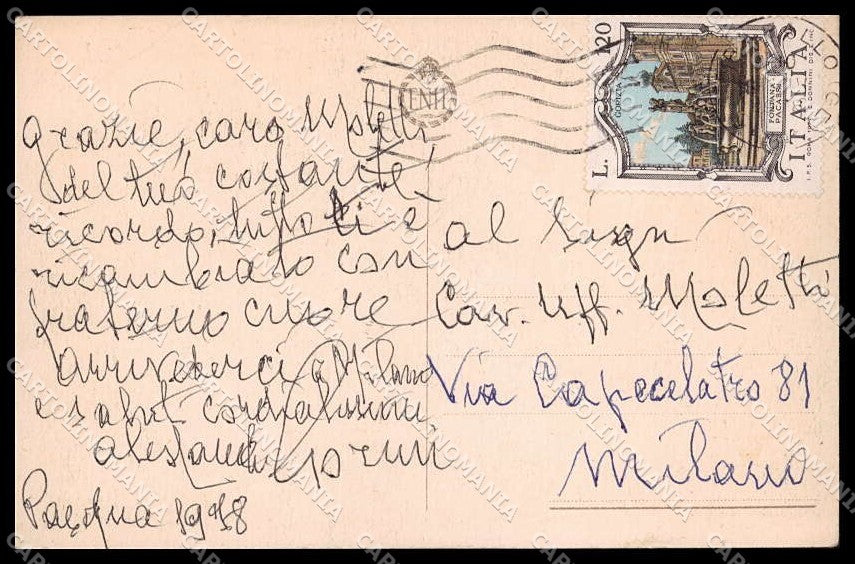 Grazie, caro Moletti
del tuo costante
ricordo, tutto ti è
ricambiato con
fraterno cuore
arrivederci a Milano
e saluti cordialissimi
Pasqua 1978
al Sign
Cav. Uff. Moletti
Via Capecelatro 81
Milano
L. 120
GORIZIA
FONTANA
PACASSI
ITALIA
CARTOLINOMANIA